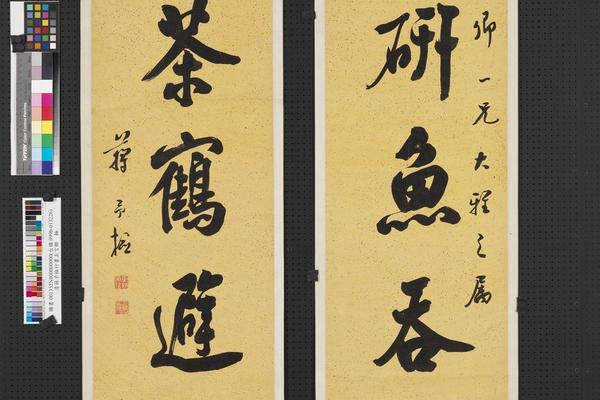 卿一兄大雅之屬
研魚吞
茶鶴避
蔣予檢